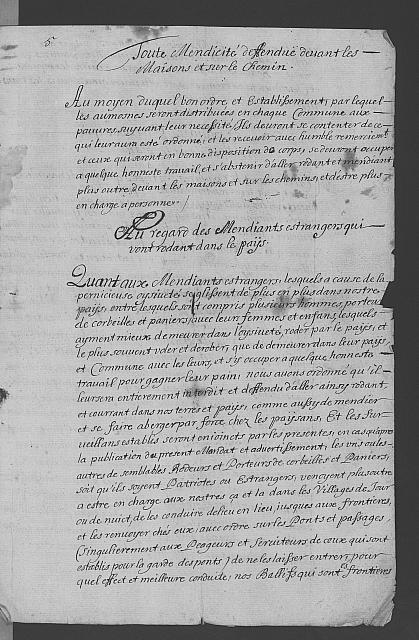 5.
Toute Mendicité deffendue deuant les
Maisons et sur le Chemin.
Au moyen duquel bon ordre, et Establissement, par lequel
les aumosnes seront distribuées en chaque Commune aux
pauures, suyuant leur necessité, Ils deuront se contenter de ce
qui leur aura esté ordonné, et les receuoir auec humble remerciemt
et ceux qui seront en bonne disposition de corps, se deuront occuper
a quelque honneste trauail, et s'abstenir d'aller rodant et mendiant
plus outre deuant les maisons et sur les chemins, et d'estre plus
en charge a personne.
Au regard des Mendiants estrangers qui
vont rodant dans le pays.
Quant aux Mendiants estrangers, lesquels a cause de la
pernicieuse oysiueté se glissent de plus en plus dans nostre
pays, entre lesquels sont compris plusieurs hommes, porteurs
de corbeilles et paniers, auec leur femmes et enfans, lesquels
ayment mieux demeurer dans l'oysiueté, roder par le pays, et
le plus souuent voler et derober, que de demeurer dans leur pays
et Commune avec les leurs, et s'y occuper a quelque honneste
trauail pour gagner leur pain; nous auons ordonné qu'il
leur sera entierement interdit et deffendu d'aller ainsy rodant,
et courrant dans nos terres et pays, comme aussy de mendier
et se faire aberger par force chez les paysans, Et les Sur-
ueillans establis seront enioinets par les presentes, en cas qu'apres
la publication du present Mandat et aduertissement, les uns ou les
autres de semblables Rodeurs et Porteurs de corbeilles et Paniers,
soit qu'ils soyent Patriotes ou Estrangers, venoyent plus outre
a estre en charge aux nostres ça et la dans les Villages de Jour
ou de nuict, de les conduire de lieu en lieu, jusques aux frontieres,
et les renuoyer chés eux; auec ordre sur les Ponts et passages
(singulierement aux Peageurs et Seruiteurs de ceux qui sont
establis pour la garde des ponts) de ne les laisser entrer, pour
quel effect et meilleure conduite; nos Ballifs qui sont es frontieres